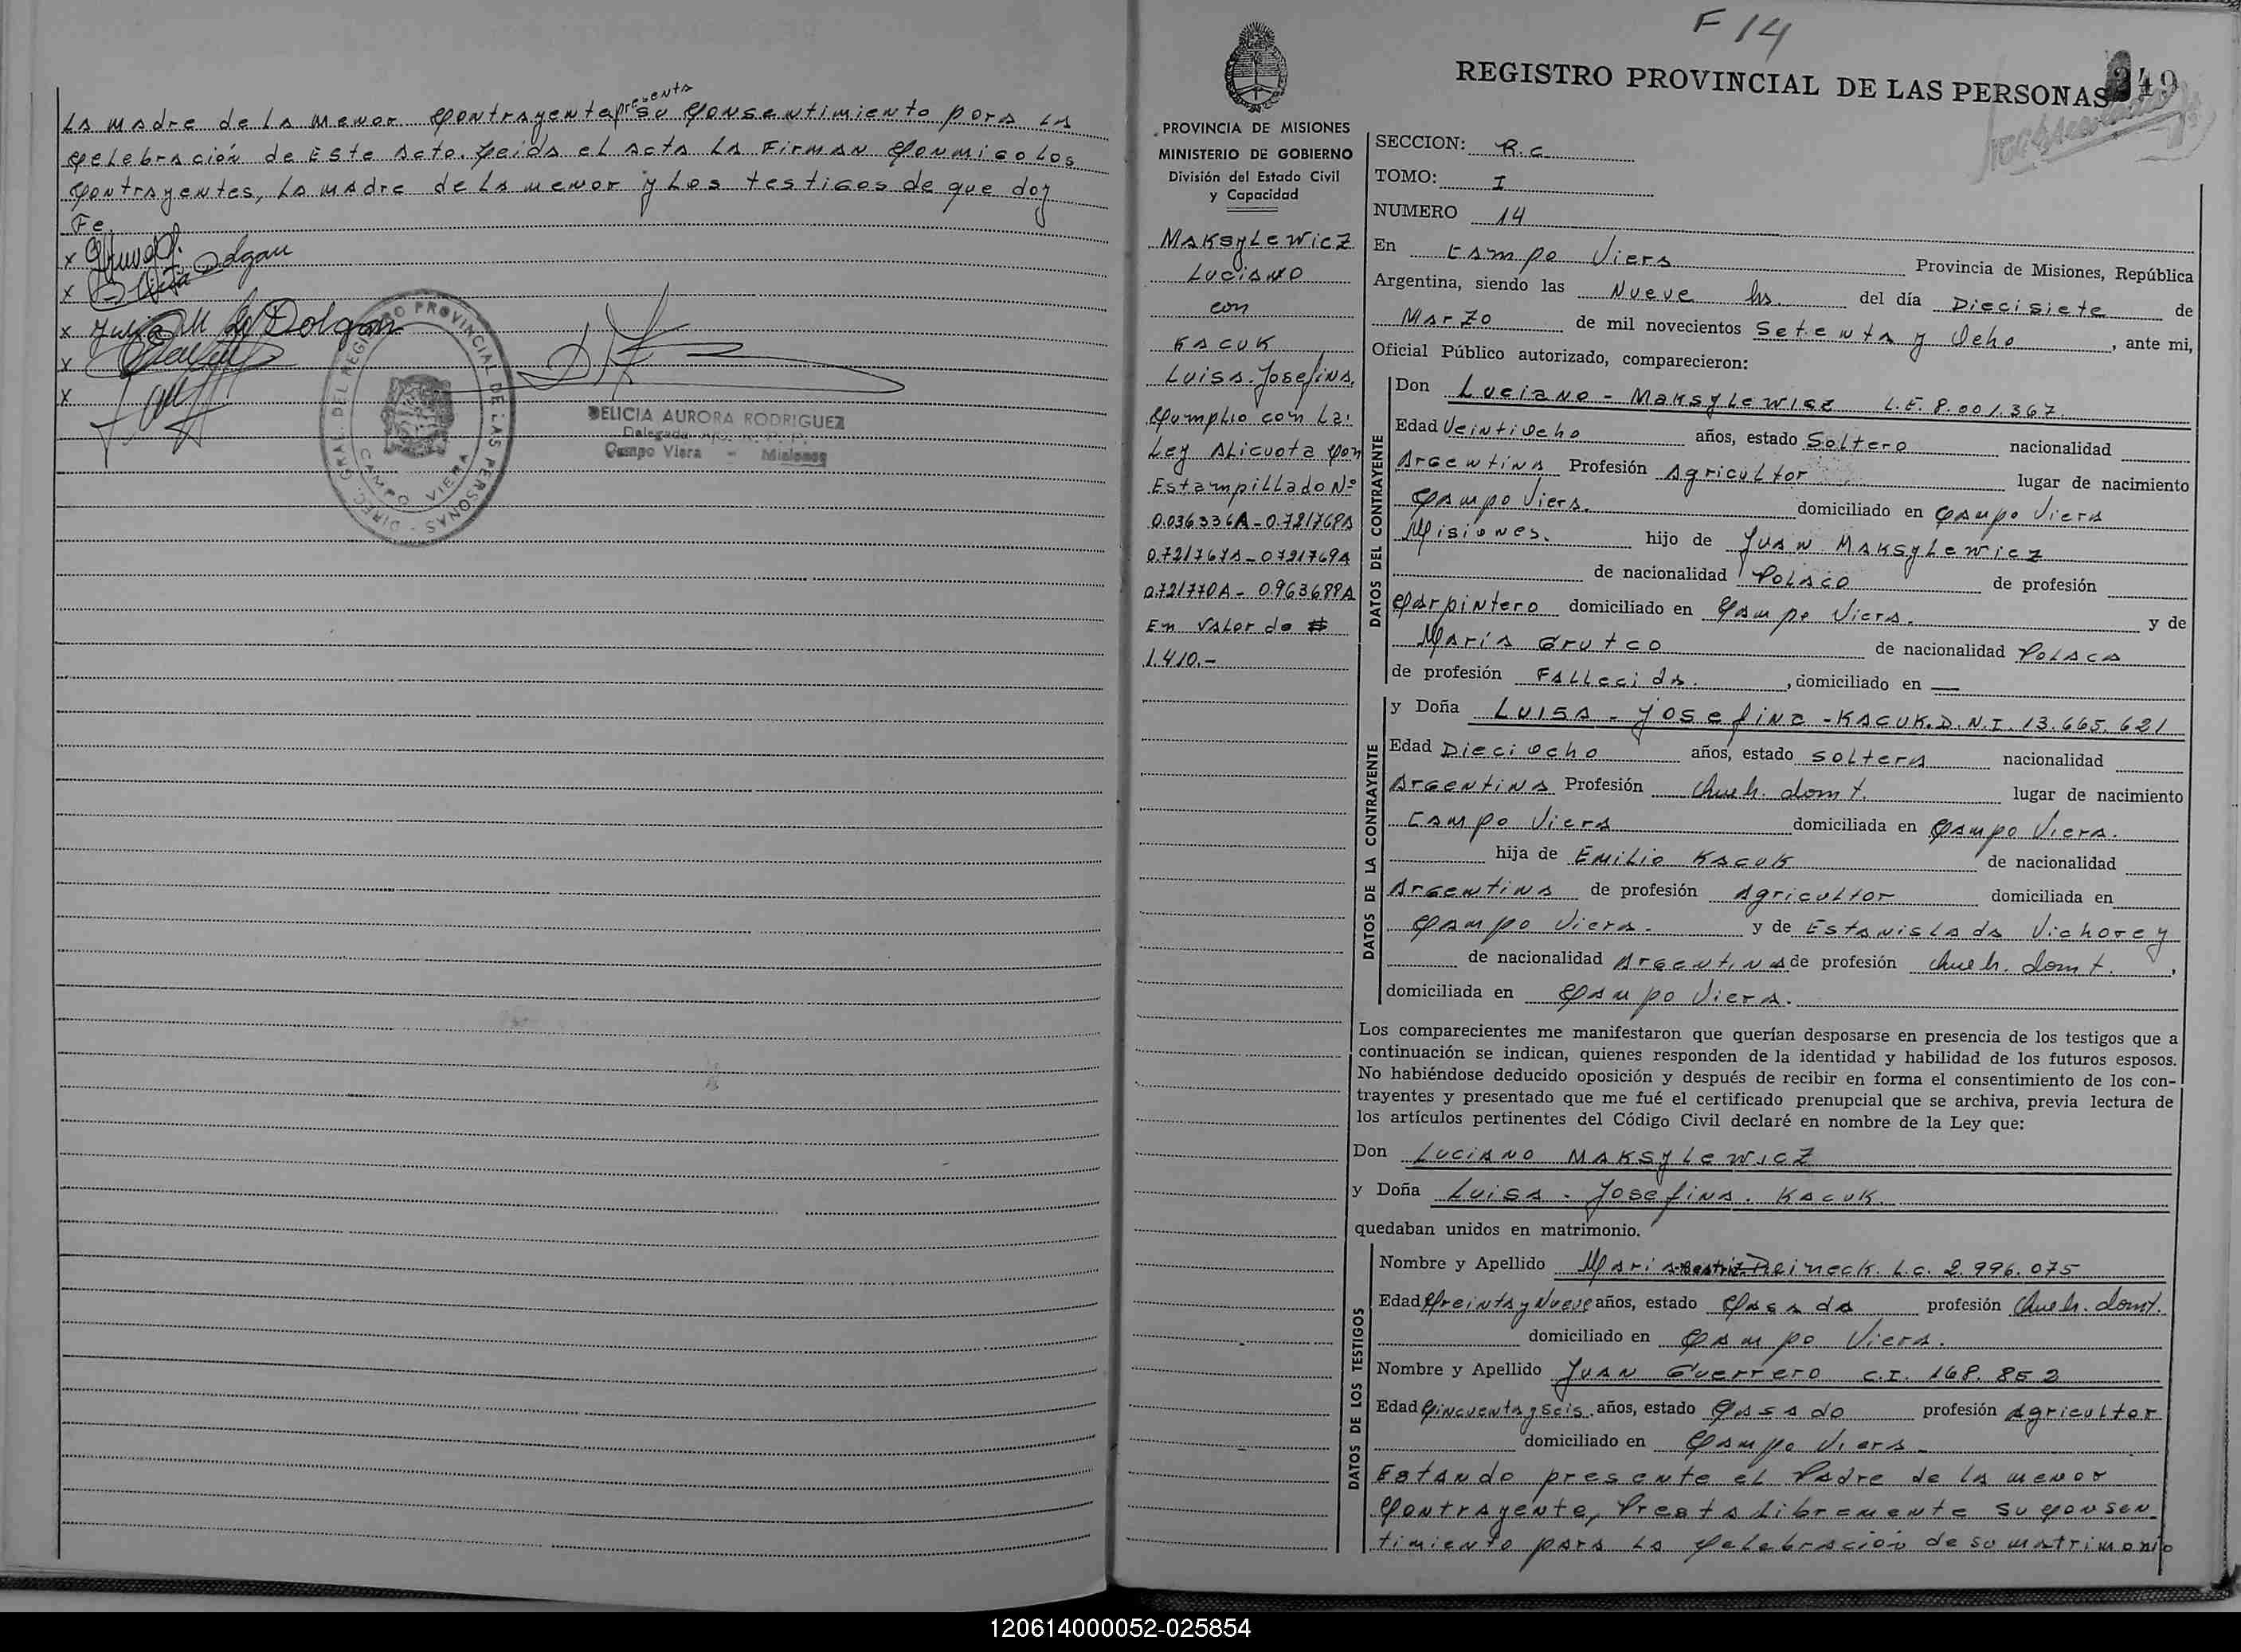 La madre de la menor contrayente presenta su consentimiento para la
celebración de este acto. Leida el acta la firman conmigo los
contrayentes, la madre de la menor y los testigos de que doy
Fe
x
x Olga Dolgan
x Julia M de Dolgan
x
x
DIREC. GRAL. DEL REGISTRO PROVINCIAL DE LAS PERSONAS
CAMPO VIERA
DELICIA AURORA RODRIGUEZ
Campo Viera - Misiones
F 14
REGISTRO PROVINCIAL DE LAS PERSONAS 249
PROVINCIA DE MISIONES
MINISTERIO DE GOBIERNO
División del Estado Civil
y Capacidad
Maksylewicz
Luciano
con
Kacuk
Luisa. Josefina.
Cumplio con la
Ley Alicuota con
Estampillado Nº
0.036336A - 0.721768A
0.721767A - 0721769A
0.721770A - 0.963688A
En valor de $
1.410.-
SECCION: R.C.
TOMO: I
NUMERO 14
En Campo Viera Provincia de Misiones, República
Argentina, siendo las Nueve hs. del día Diecisiete de
Marzo de mil novecientos Setenta y Ocho, ante mi,
Oficial Público autorizado, comparecieron:
DATOS DEL CONTRAYENTE
Don Luciano - Maksylewicz L.E. 8.001.367
Edad Veintiocho años, estado Soltero nacionalidad
Argentina Profesión Agricultor lugar de nacimiento
Campo Viera. domiciliado en Campo Viera
Misiones. hijo de Juan Maksylewicz
de nacionalidad Polaco de profesión
Carpintero domiciliado en Campo Viera. y de
María Grutco de nacionalidad Polaca
de profesión Fallecida. , domiciliado en —
DATOS DE LA CONTRAYENTE
y Doña Luisa - Josefina - Kacuk. D.N.I. 13.665.621
Edad Dieciocho años, estado soltera nacionalidad
Argentina Profesión Queh. domt. lugar de nacimiento
Campo Viera domiciliada en Campo Viera.
hija de Emilio Kacuk de nacionalidad
Argentina de profesión Agricultor domiciliada en
Campo Viera. y de Estanislada Vichorey
de nacionalidad Argentina de profesión Queh. domt. ,
domiciliada en Campo Viera.
Los comparecientes me manifestaron que querían desposarse en presencia de los testigos que a
continuación se indican, quienes responden de la identidad y habilidad de los futuros esposos.
No habiéndose deducido oposición y después de recibir en forma el consentimiento de los con-
trayentes y presentado que me fué el certificado prenupcial que se archiva, previa lectura de
los artículos pertinentes del Código Civil declaré en nombre de la Ley que:
Don Luciano Maksylewicz
y Doña Luisa - Josefina. Kacuk.
quedaban unidos en matrimonio.
DATOS DE LOS TESTIGOS
Nombre y Apellido Maria Beatriz Reineck. L.C. 2.996.075
Edad Treinta y Nueve años, estado Casada profesión Queh. domt.
domiciliado en Campo Viera.
Nombre y Apellido Juan Guerrero C.I. 168.852
Edad Cincuenta y Seis. años, estado Casado profesión Agricultor
domiciliado en Campo Viera
Estando presente el Padre de la menor
Contrayente, Presta libremente su consen
timiento para la celebración de su matrimonio
120614000052-025854